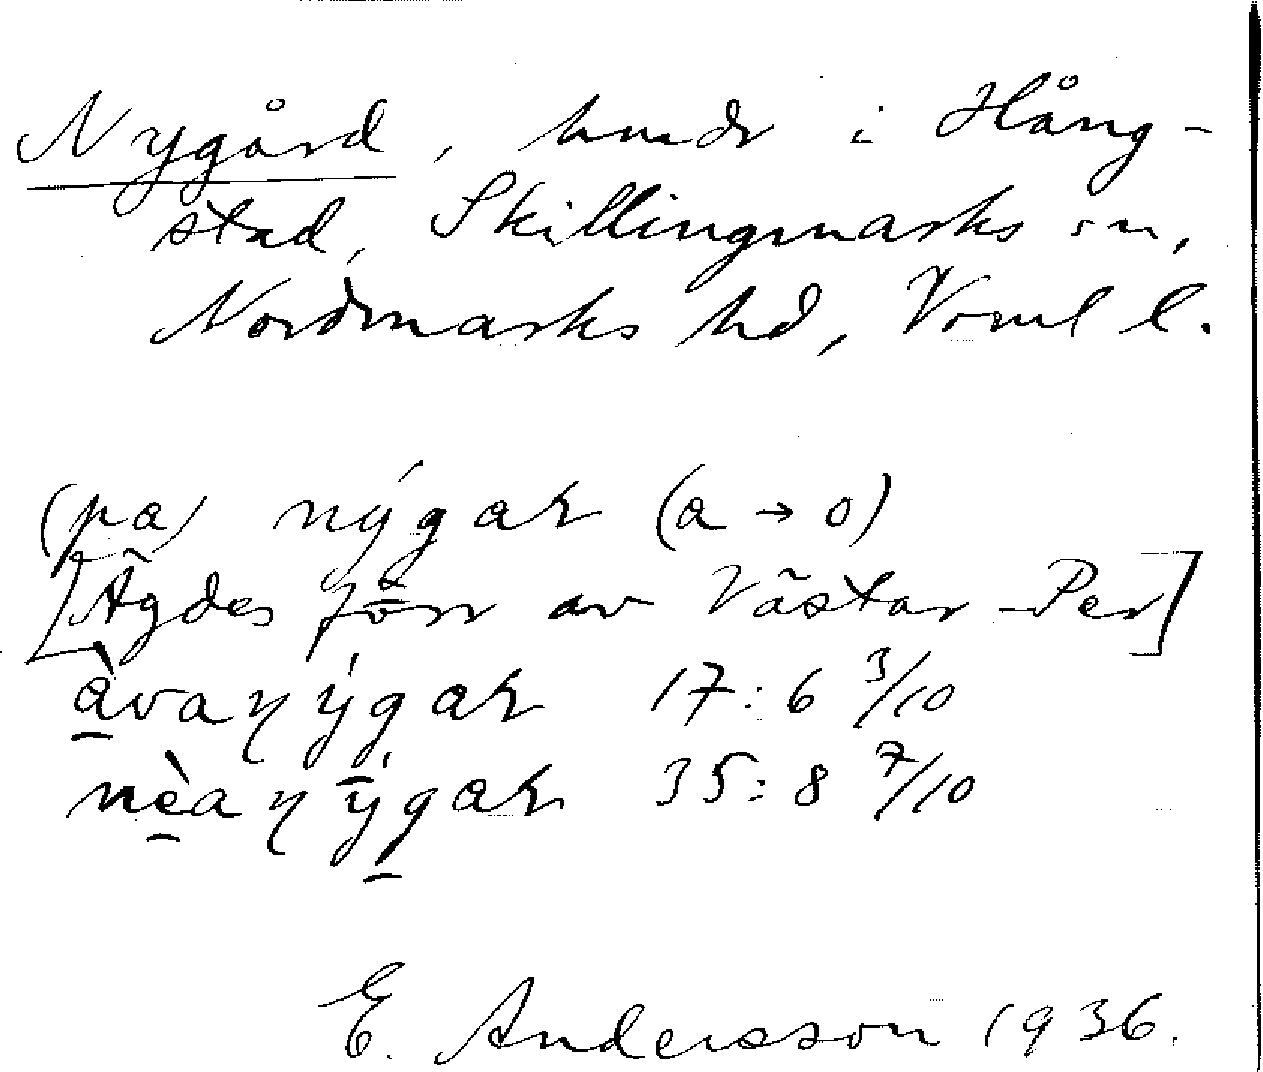 Nygård, hmdr i Hång-
stad, Skillingmarks sn,
Nordmarks hd, Vrml l.
(pa) nýgar (a → o)
[Ägdes förr av Västar-Per]
àvaηýgar 17:6 3/10
nèaηýgar 35:8 7/10
E. Andersson 1936.